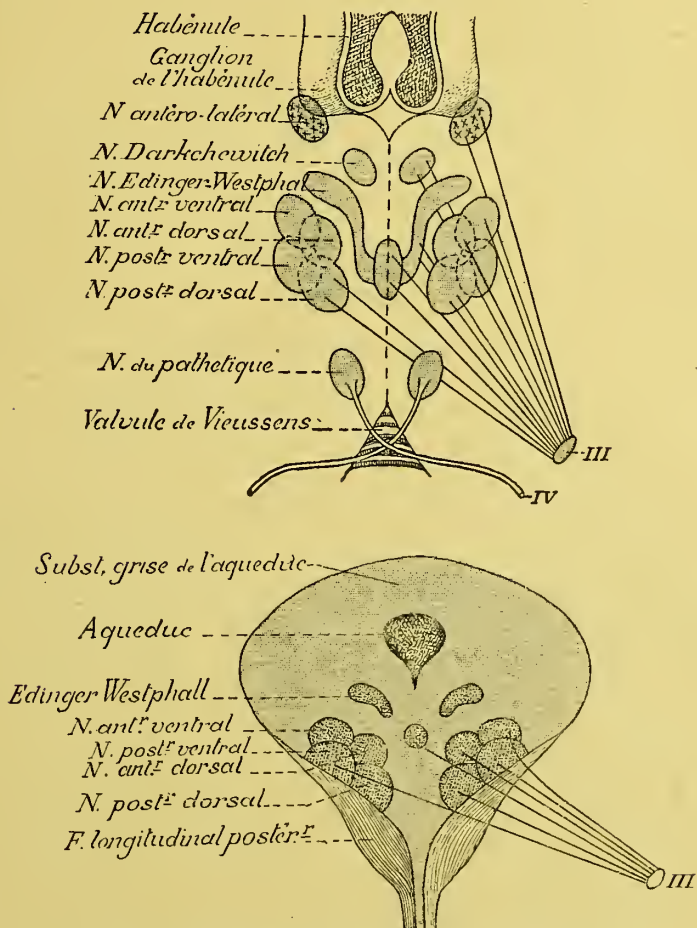 Habénule
Ganglion
de l'habénule
N antéro-latéral
N. Darkchewitch
N. Edinger-Westphal
N. antr ventral
N. antr dorsal
N. postr ventral
N. postr dorsal
N. du pathetique
Valvule de Vieussens
III
IV
Subst. grise de l'aqueduc
Aqueduc
Edinger Westphall
N. antr ventral
N. postr ventral
N. antr dorsal
N. postr dorsal
F. longitudinal postér.r
III